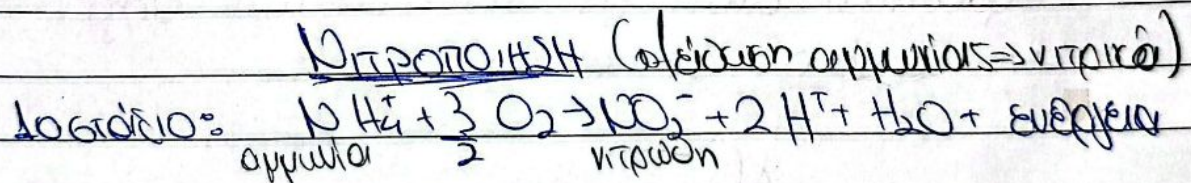 ΝΙΤΡΟΠΟΙΗΣΗ (οξείδωση αμμωνίας => νιτρικά)
1ο στάδιο: NH₄⁺ + 3/2 O₂ → NO₂⁻ + 2H⁺ + H₂O + ενέργεια
αμμωνία νιτρώδη